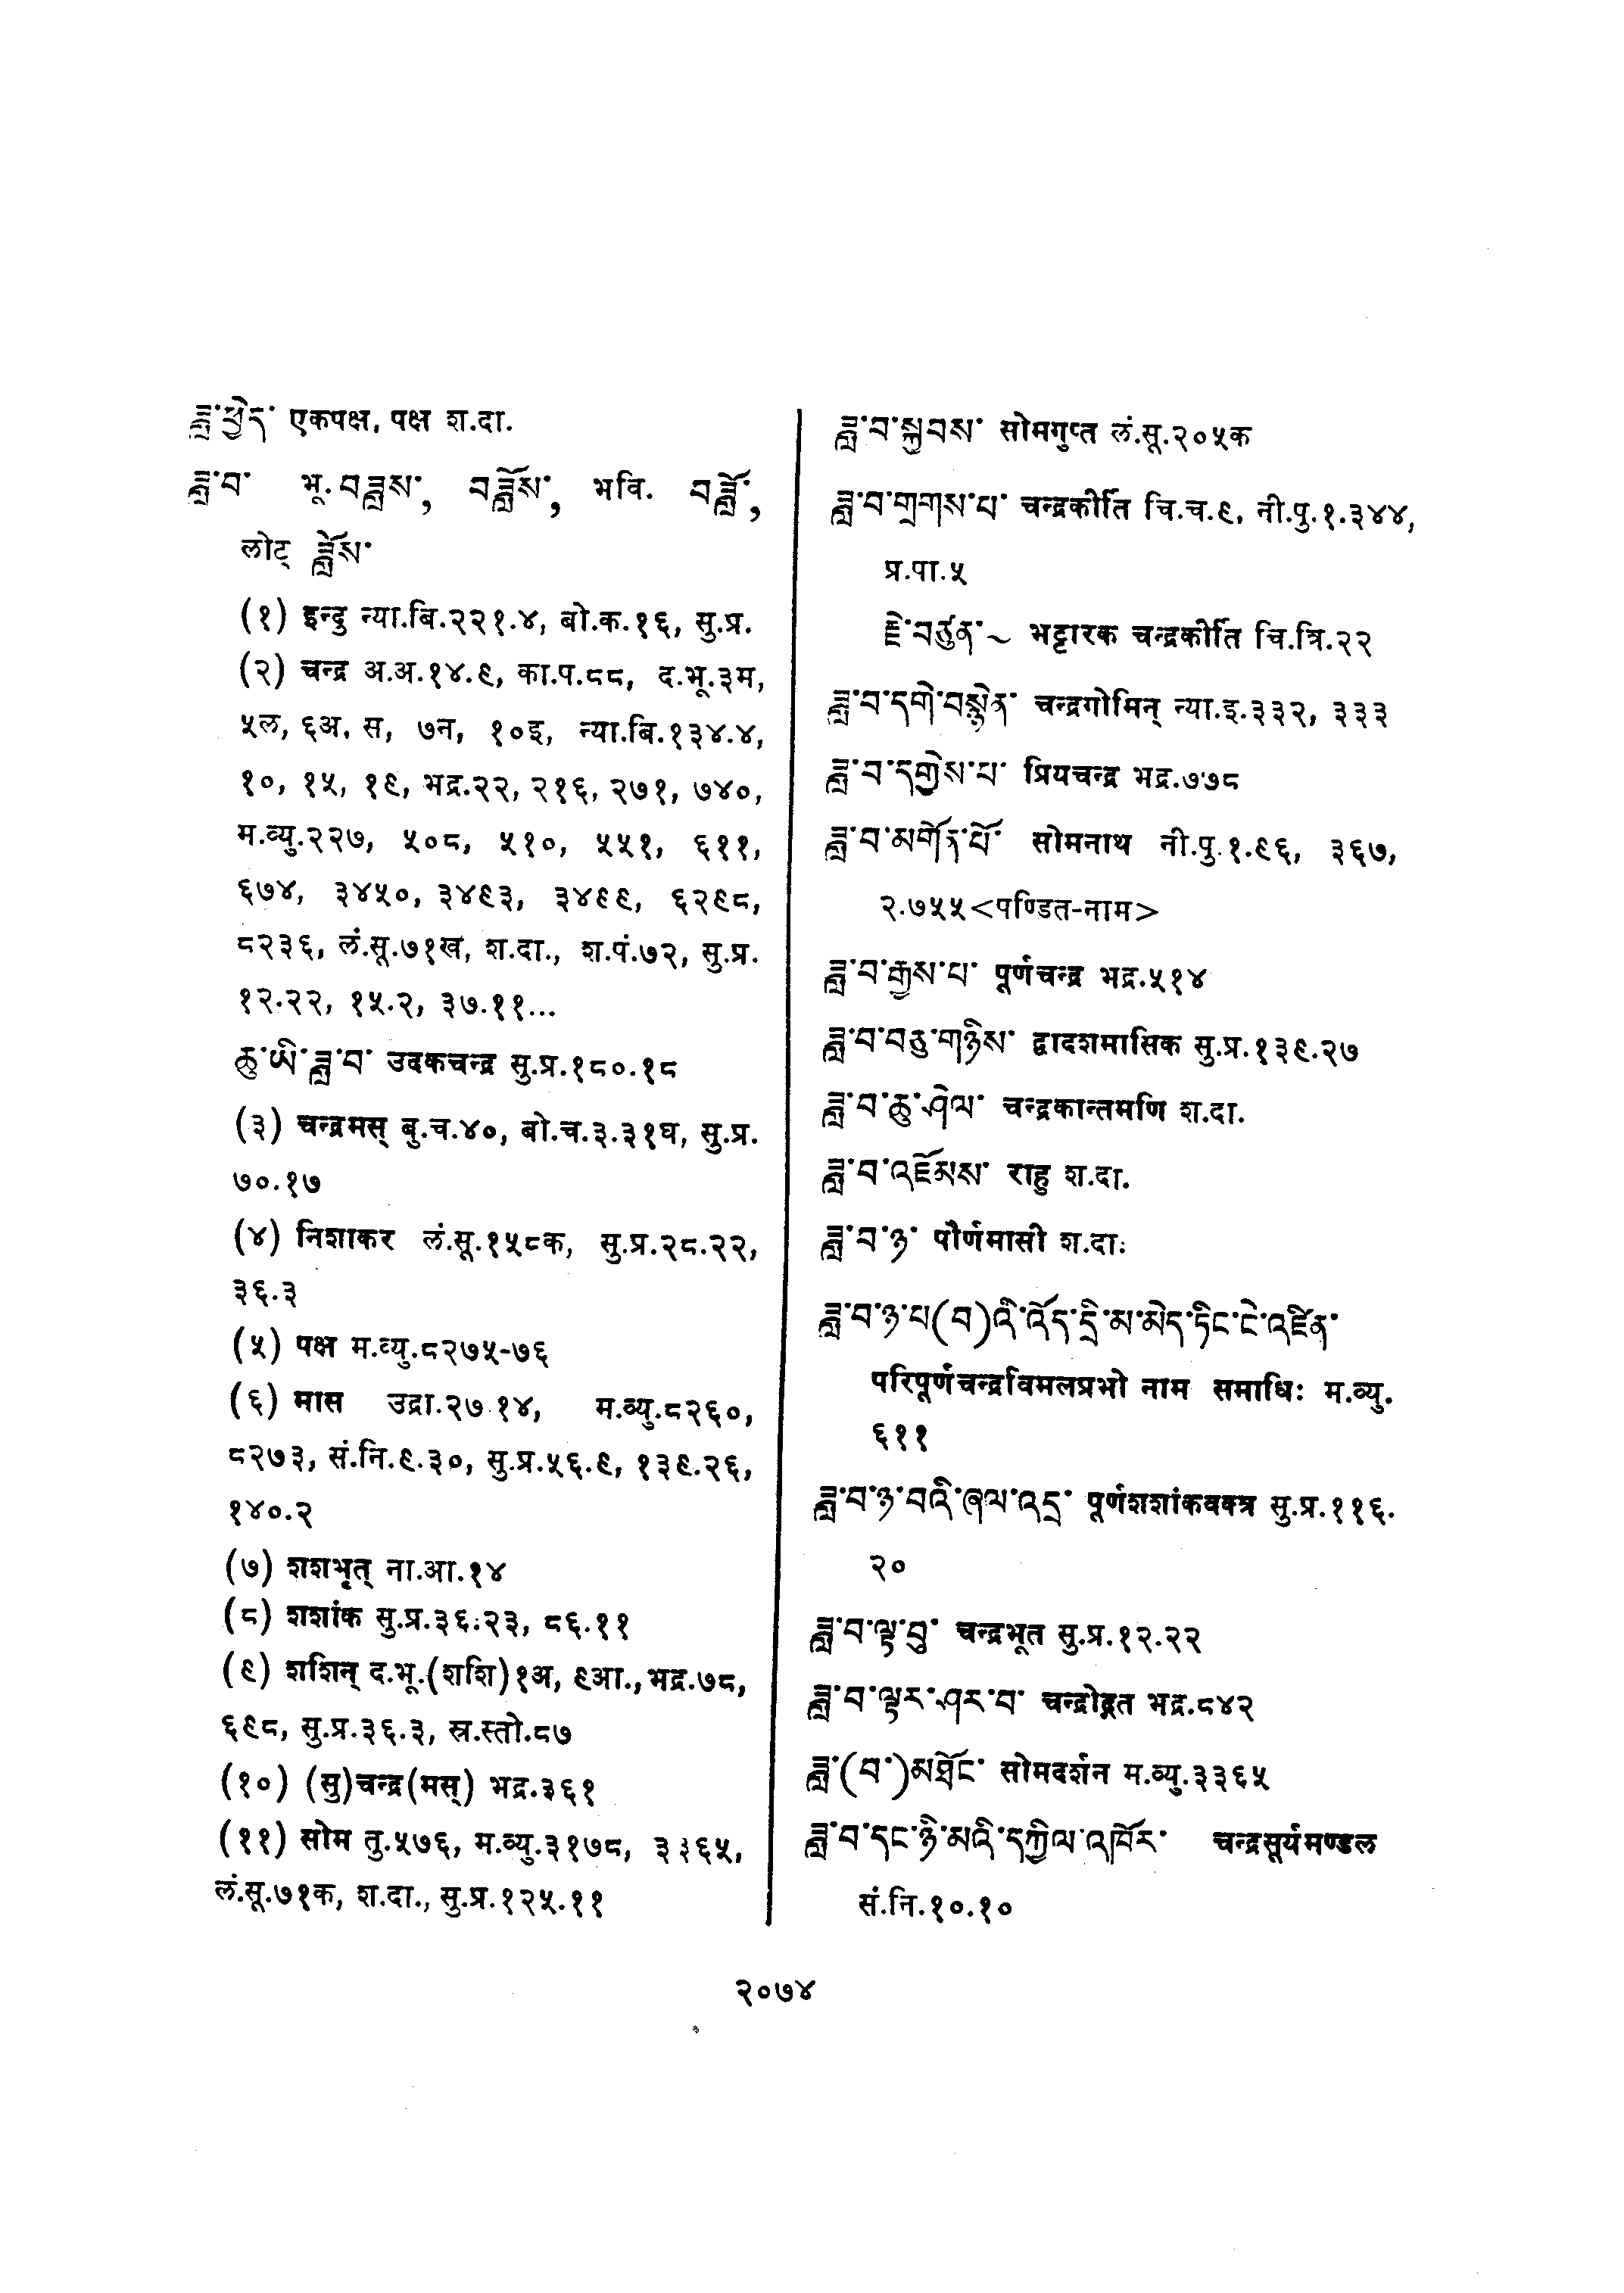 ཟླ་ཕྱེད་ एकपक्ष, पक्ष श.दा.
ཟླ་བ་ भू. བཟླས་, བཟློས་, भवि. བཟློ་,
लोट् ཟློས་
(१) इन्दु न्या.बि.२२१.४, बो.क.१६, सु.प्र.
(२) चन्द्र अ.अ.१४.९, का.प.८८, द.भू.३म,
५ल, ६अ, स, ७न, १०इ, न्या.बि.१३४.४,
१०, १५, १९, भद्र.२२, २१६, २७१, ७४०,
म.व्यु.२२७, ५०८, ५१०, ५५१, ६११,
६७४, ३४५०, ३४९३, ३४९९, ६२९८,
८२३६, लं.सू.७१ख, श.दा., श.पं.७२, सु.प्र.
१२.२२, १५.२, ३७.११...
ཆུ་ཡི་ཟླ་བ་ उदकचन्द्र सु.प्र.१८०.१८
(३) चन्द्रमस् बु.च.४०, बो.च.३.३१घ, सु.प्र.
७०.१७
(४) निशाकर लं.सू.१५८क, सु.प्र.२८.२२,
३६.३
(५) पक्ष म.व्यु.८२७५-७६
(६) मास उद्रा.२७.१४, म.व्यु.८२६०,
८२७३, सं.नि.९.३०, सु.प्र.५६.९, १३९.२६,
१४०.२
(७) शशभृत् ना.आ.१४
(८) शशांक सु.प्र.३६.२३, ८६.११
(९) शशिन् द.भू.(शशि)१अ, ९आ., भद्र.७८,
६९८, सु.प्र.३६.३, स्र.स्तो.८७
(१०) (सु)चन्द्र(मस्) भद्र.३६१
(११) सोम तु.५७६, म.व्यु.३१७८, ३३६५,
लं.सू.७१क, श.दा., सु.प्र.१२५.११
ཟླ་བ་སྐྱབས་ सोमगुप्त लं.सू.२०५क
ཟླ་བ་གྲགས་པ་ चन्द्रकीर्ति चि.च.९, नी.पु.१.३४४,
प्र.पा.५
རྗེ་བཙུན་~ भट्टारक चन्द्रकीर्ति चि.त्रि.२२
ཟླ་བ་དགེ་བསྙེན་ चन्द्रगोमिन् न्या.इ.३३२, ३३३
ཟླ་བ་དགྱེས་པ་ प्रियचन्द्र भद्र.७७८
ཟླ་བ་མགོན་པོ་ सोमनाथ नी.पु.१.९६, ३६७,
२.७५५<पण्डित-नाम>
ཟླ་བ་རྒྱས་པ་ पूर्णचन्द्र भद्र.५१४
ཟླ་བ་བཅུ་གཉིས་ द्वादशमासिक सु.प्र.१३९.२७
ཟླ་བ་ཆུ་ཤེལ་ चन्द्रकान्तमणि श.दा.
ཟླ་བ་འཇོམས་ राहु श.दा.
ཟླ་བ་ཉ་ पौर्णमासी श.दाः
ཟླ་བ་ཉ་པ(བ)འི་འོད་དྲི་མ་མེད་ཏིང་ངེ་འཛིན་
परिपूर्णचन्द्रविमलप्रभो नाम समाधिः म.व्यु.
६११
ཟླ་བ་ཉ་བའི་ཞལ་འདྲ་ पूर्णशशांकवक्त्र सु.प्र.११६.
२०
ཟླ་བ་ལྟ་བུ་ चन्द्रभूत सु.प्र.१२.२२
ཟླ་བ་ལྟར་ཤར་བ་ चन्द्रोद्गत भद्र.८४२
ཟླ་(བ་)མཐོང་ सोमदर्शन म.व्यु.३३६५
ཟླ་བ་དང་ཉི་མའི་དཀྱིལ་འཁོར་ चन्द्रसूर्यमण्डल
सं.नि.१०.१०
२०७४